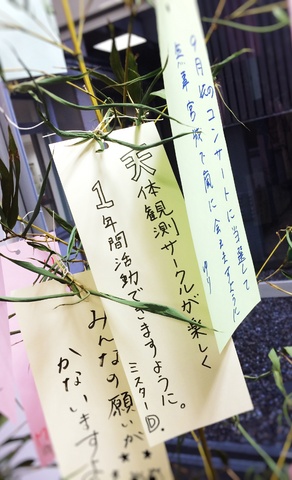 9月のコンサートに当選して
に会えますように
天体観測サークルが楽しく
1年間活動できますように。
ミスターD.
みんなの願いが
かないますよ